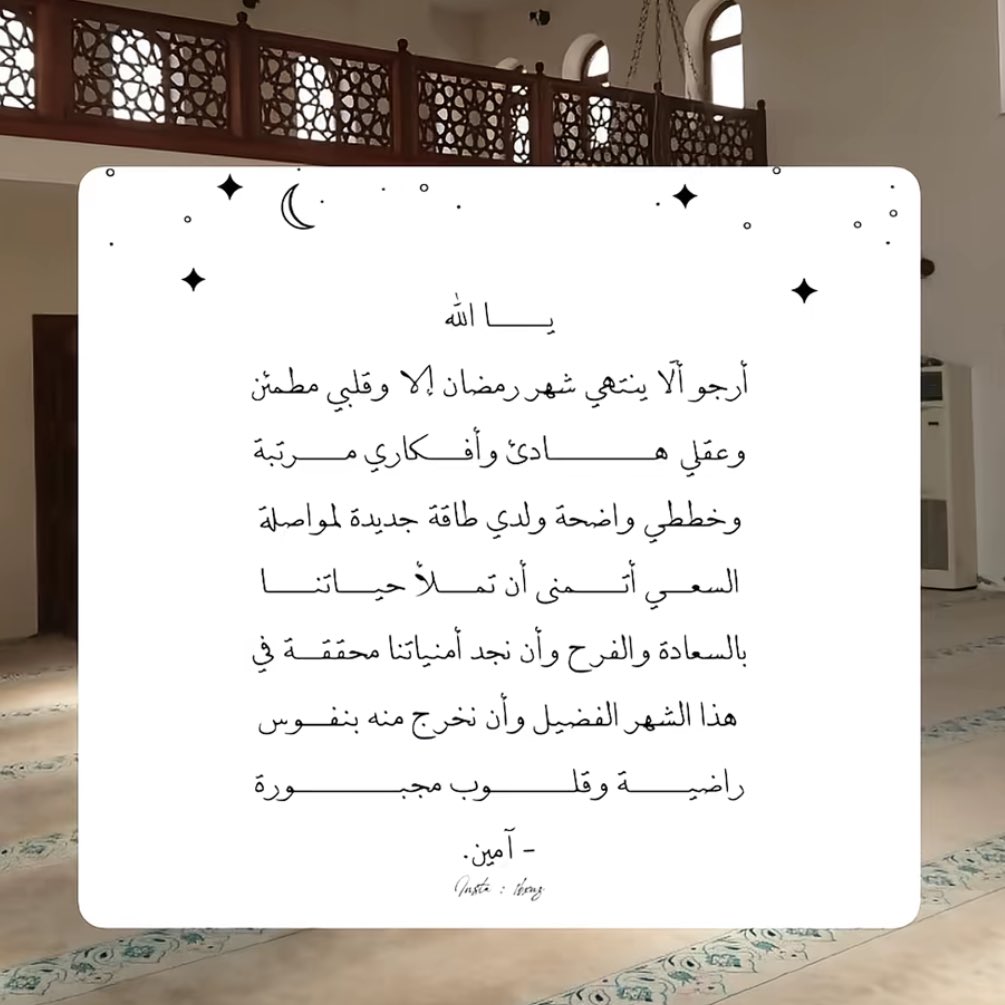 يـــــا الله
أرجو ألّا ينتهي شهر رمضان إلا وقلبي مطمئن
وعقلي هـــــــــادئ وأفـــكاري مـــرتبة
وخططي واضحة ولدي طاقة جديدة لمواصلة
السعـــي أتــــمنى أن تمـــلأ حيـــاتنــــا
بالسعادة والفرح وأن نجد أمنياتنا محققـــة في
هذا الشهر الفضيل وأن نخرج منه بنفـــوس
راضيـــــة وقلـــــــوب مجبـــــــــورة
- آمين.
Insta :